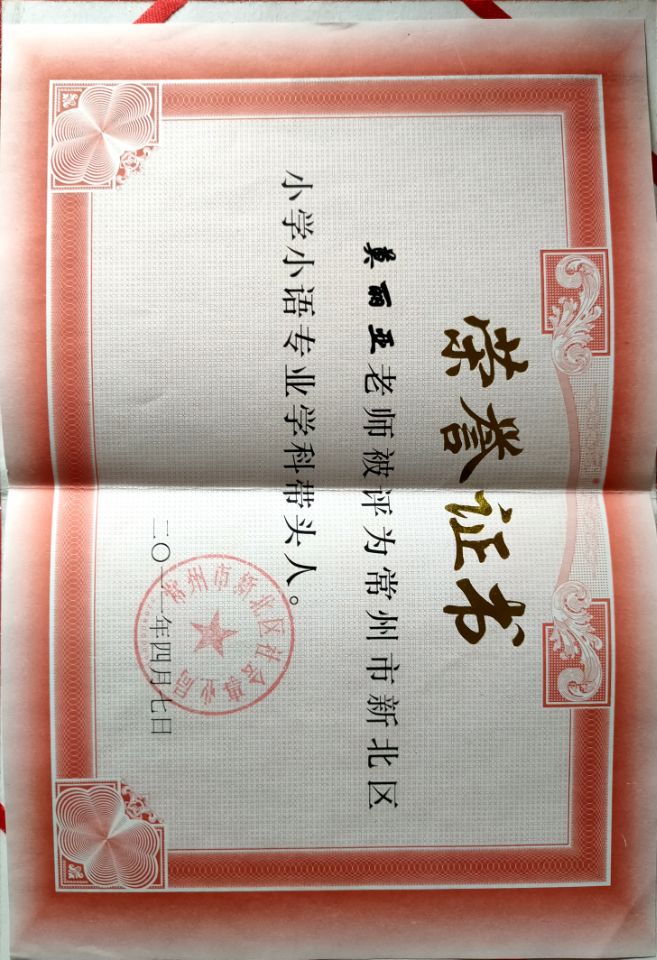 荣誉证书
莫丽亚老师被评为常州市新北区
小学小语专业学科带头人。
二〇一一年四月七日
常州市新北区社会事业局